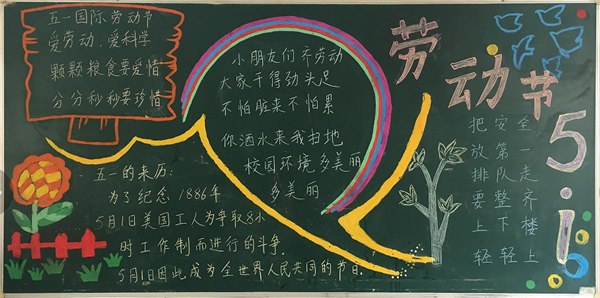 五一国际劳动节
爱劳动，爱科学
颗颗粮食要爱惜
分分秒秒要珍惜
小朋友们齐劳动
大家干得劲头足
不怕脏来不怕累
你洒水来我扫地
校园环境多美丽
多美丽
劳动节
5.1
把安全
放第一
排队走
要整齐
上下楼
轻轻上
五一的来历：
为了纪念1886年
5月1日美国工人为争取8小
时工作制而进行的斗争.
5月1日因此成为全世界人民共同的节日.